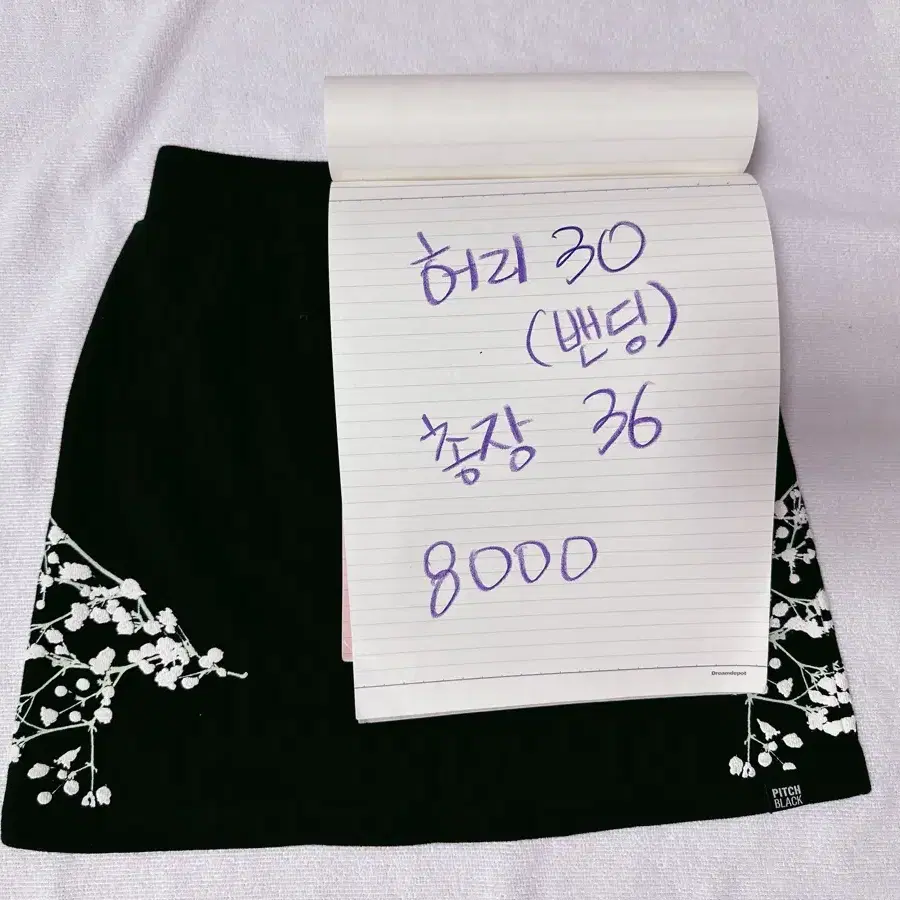 허리 30
(밴딩)
총장 36
8000
Dreamdepot
PITCH
BLACK